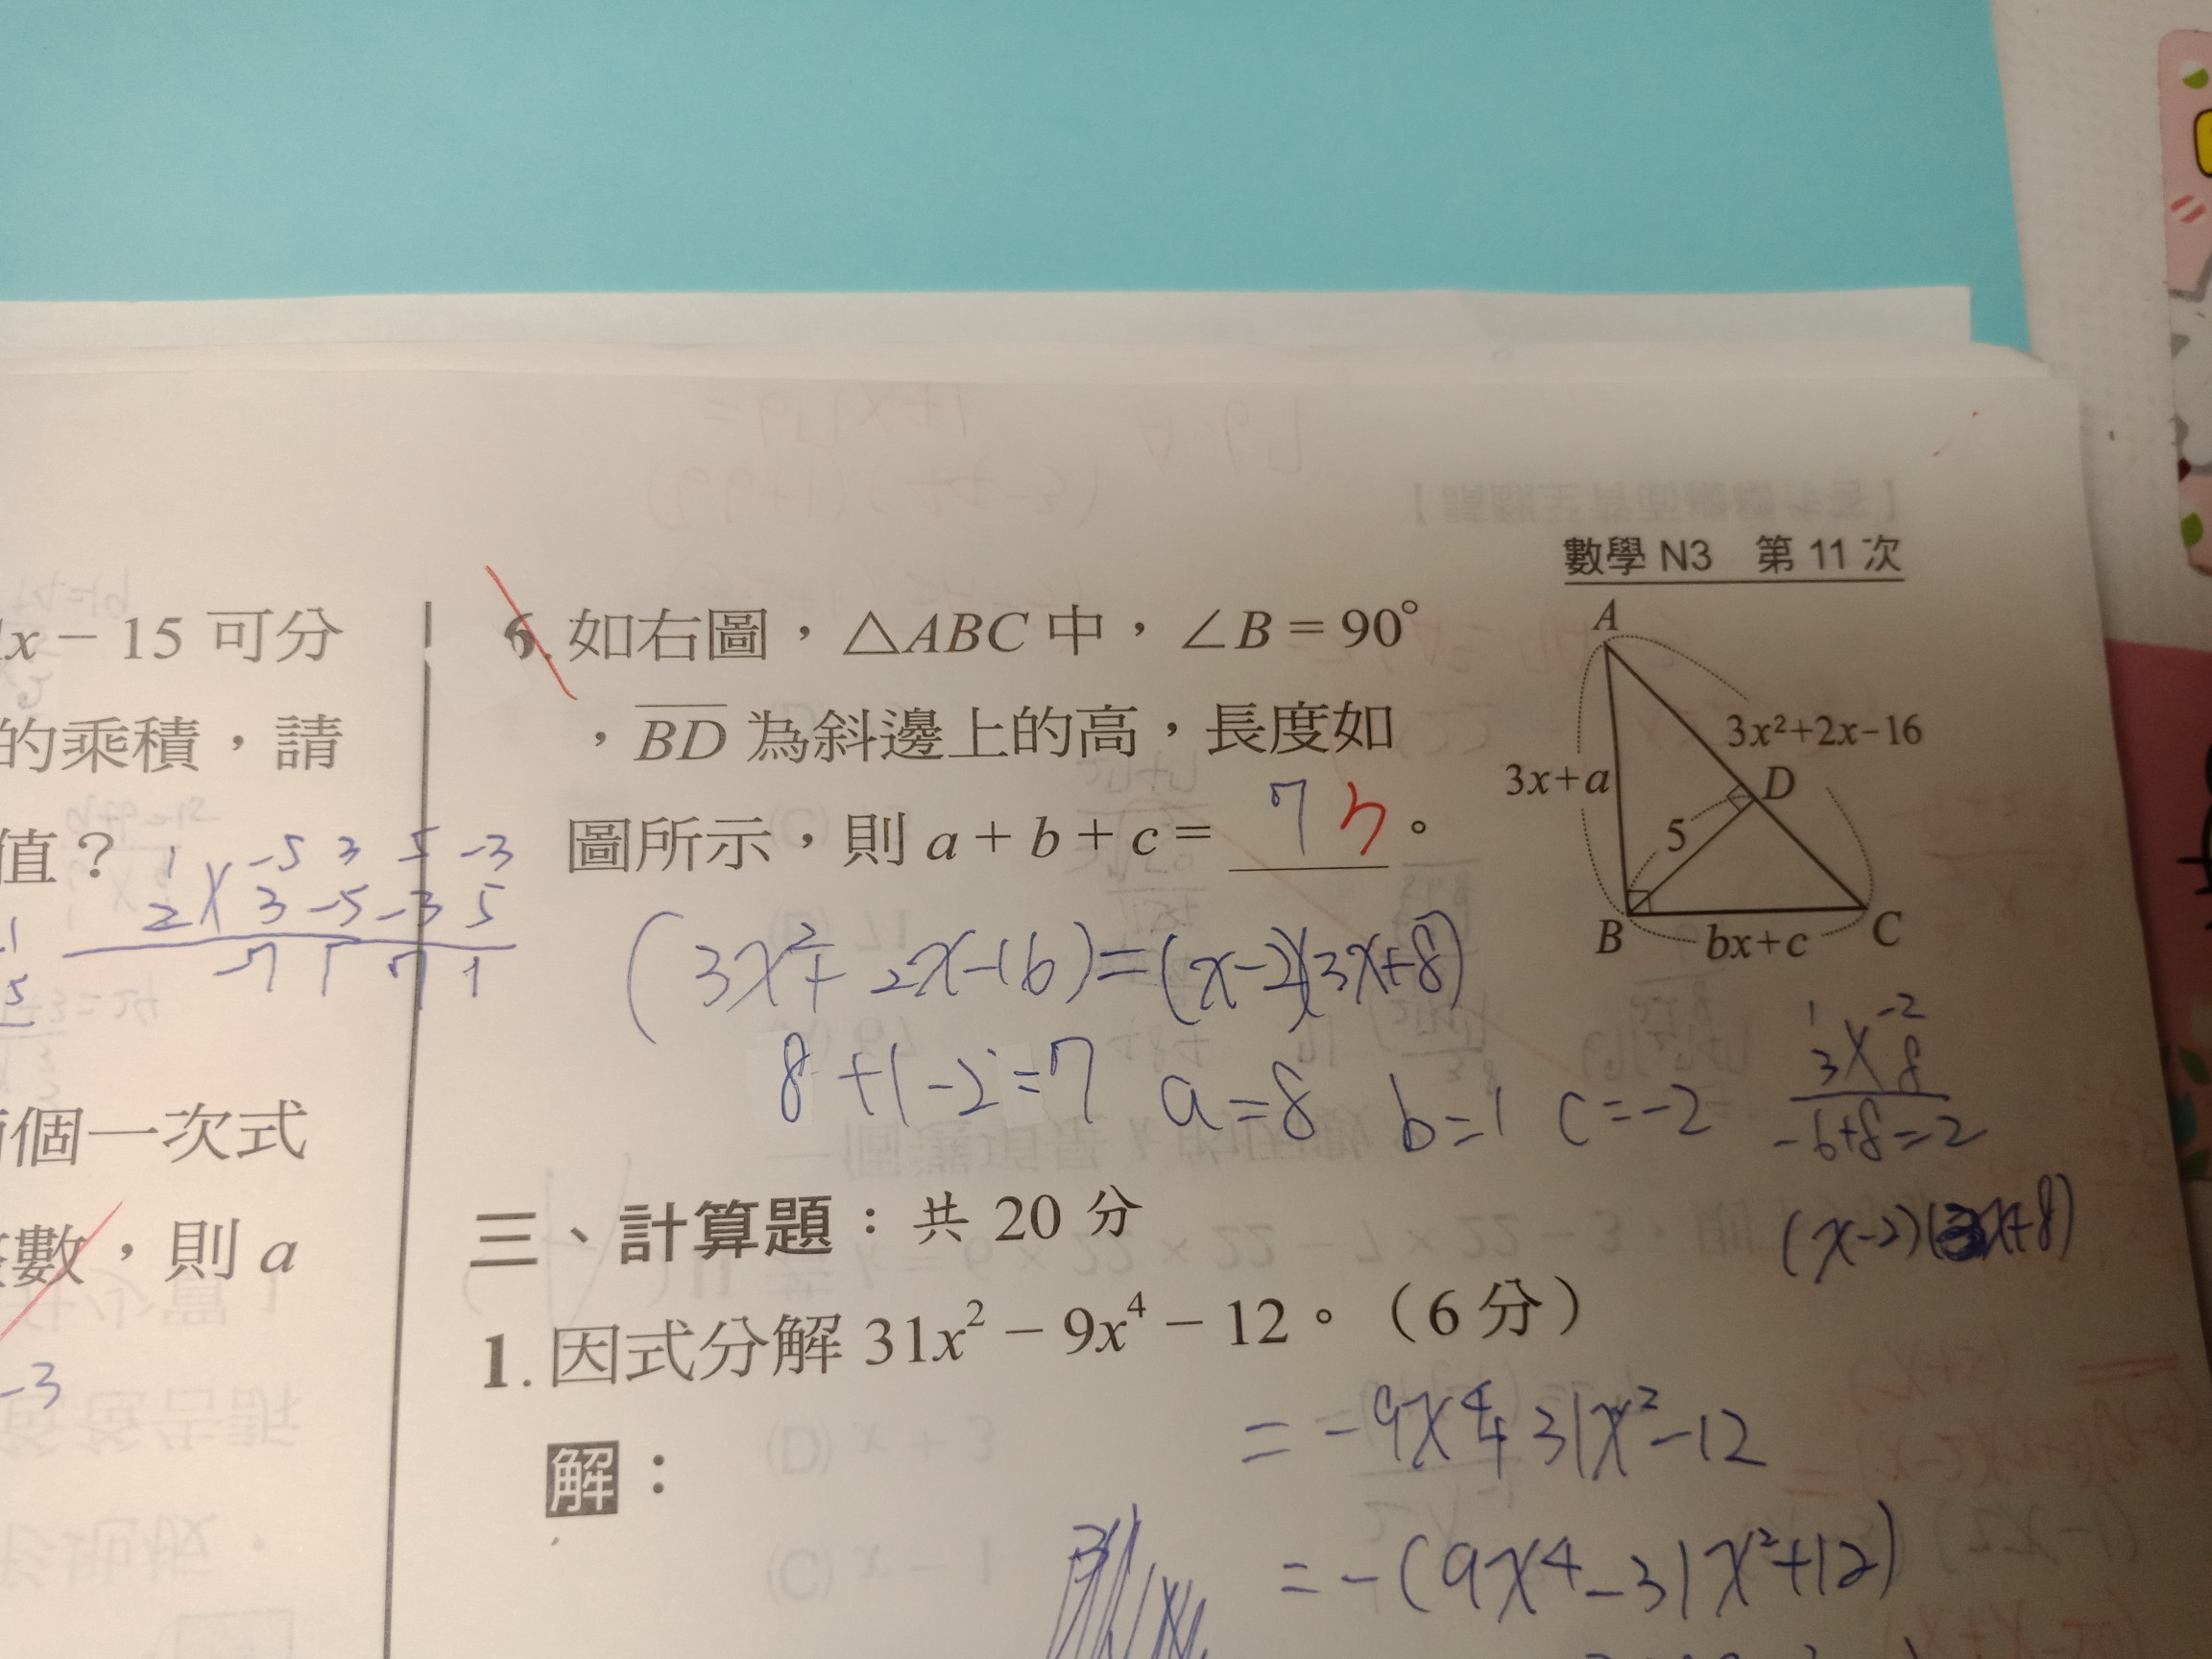 數學 N3 第 11 次
x − 15 可分
的乘積，請
值？
1 -5 3 5 -3
2 3 -5 -3 5
-7 1 7 1
個一次式
數，則 a
-3
6. 如右圖，△ABC 中，∠B = 90°
，BD 為斜邊上的高，長度如
圖所示，則 a + b + c = 7 。
A
3x²+2x−16
3x+a
D
5
B
bx+c
C
(3x²+2x-16)=(x-2)(3x+8)
8+1-2=7 a=8 b=1 c=-2
1 -2
3 8
-6+8=2
(x-2)(3x+8)
三、計算題：共 20 分
1. 因式分解 31x² − 9x⁴ − 12。（6 分）
= -9x⁴+31x²-12
解：
= -(9x⁴-31x²+12)